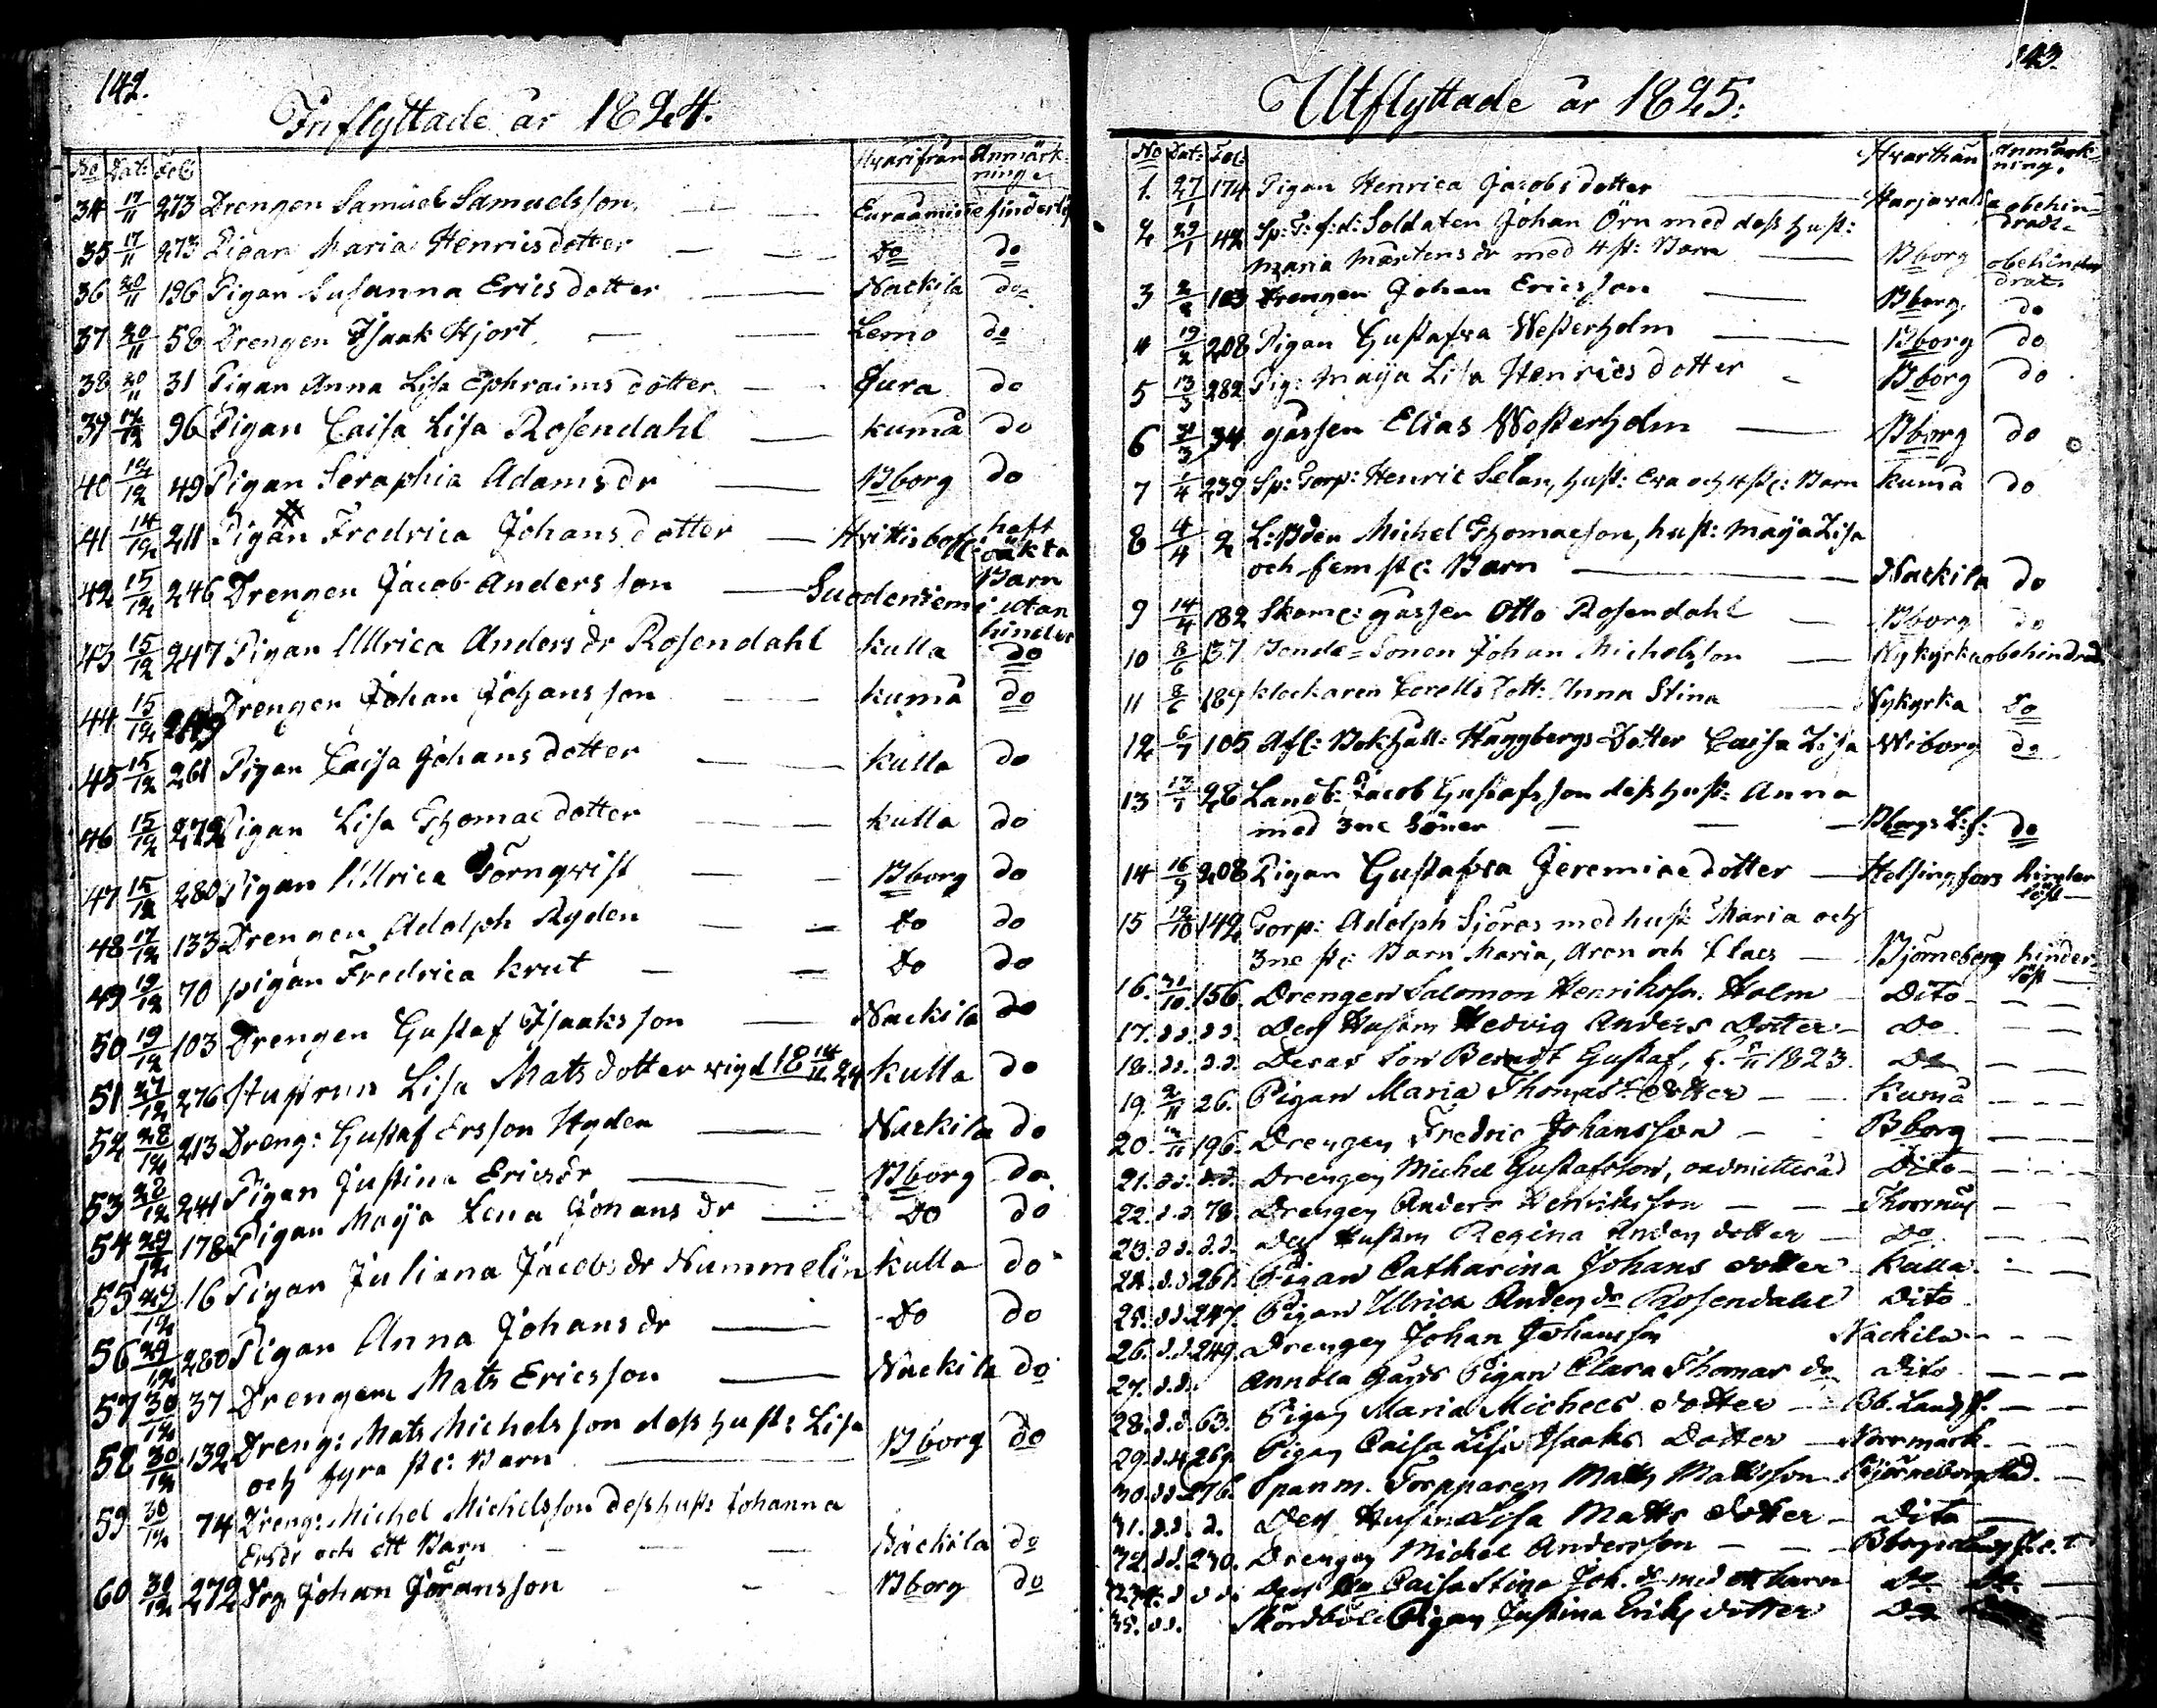 142.
Inflyttade år 1824.
No Dat: Fol: Hvarifrån Anmärk-
ning.
34 17/11 273 Drengen Samuel Samuelsson Euraåminne
35 17/11 273 Pigan Maria Henricsdotter do do
36 20/11 196 Pigan Susanna Ericsdotter Nackila do
37 20/11 58 Drengen Isaak Hjort Lemo do
38 20/11 31 Pigan Anna Lisa Ephraimsdotter Eura do
39 12/12 96 Pigan Caisa Lisa Rosendahl Kumå do
40 12/12 49 Pigan Seraphia Adamsdr Bborg do
41 14/12 211 Pigan Fredrica Johansdotter Hvittisbofj: haft
oäkta
Barn
42 15/12 246 Drengen Jacob Andersson Suodeniemi utan
hinder
43 15/12 247 Pigan Ullrica Andersdr Rosendahl Kulla do
44 15/12 249 Drengen Johan Johansson Kumå do
45 15/12 261 Pigan Caisa Johansdotter Kulla do
46 15/12 272 Pigan Lisa Thomaedotter Kulla do
47 15/12 280 Pigan Ullrica Törnqvist Bborg do
48 17/12 133 Drengen Adolph Ryden do do
49 19/12 70 pigan Fredrica Krut do do
50 19/12 103 Drengen Gustaf Isaksson Nackila do
51 27/12 276 Hustrun Lisa Matsdotter vigd 18 14/11 24 Kulla do
52 28/12 213 Dreng: Gustaf Ersson Hyden Nackila do
53 28/12 241 Pigan Justina Ericsdr Bborg do
54 29/12 178 Pigan Maija Lena Johansdr do do
55 29/12 16 Pigan Juliana Jacobsdr Nummelin Kulla do
56 29/12 280 Pigan Anna Johansdr do do
57 30/12 37 Drengen Mats Ericsson Nackila do
58 30/12 132 Dreng: Mats Michelsson dess hust: Lisa
och fyra st: Barn Bborg do
59 30/12 74 Dreng: Michel Michelsson dess hust: Johanna
Ersdr och ett Barn Nackila do
60 30/12 272 Drg Johan Göransson Bborg do
143.
Utflyttade år 1825:
No Dat: Fol: Hvarthän Anmärk-
ning.
1. 27/1 174 Pigan Henrica Jacobsdotter Harjavalda obehin-
drade
2 29/1 42 Sp: T: f:d: Soldaten Johan Örn med dess hust:
Maria Mårtensdr med 4 st: Barn Bborg obehin
drat
3 103 Drengen Johan Ericsson Bborg do
4 19/2 208 Pigan Gustafva Westerholm Bborg do
5 13/3 282 Pig: Maija Lisa Henricsdotter Bborg do
6 34 gossen Elias Westerholm Bborg do
7 1/4 239 Sp: Torp: Henric Selan, hust: Eva och 4 st: Barn Kumå do
8 4/4 2 L:Bden Michel Thomaeson, hust: Maija Lisa
och fem st: Barn Nackila do
9 14/4 182 Skom: gossen Otto Rosendahl Bborg do
10 8/6 137 Bonde-Sonen Johan Michelsson Nykyrka obehindrad
11 8/6 189 Klockaren Corells Dott: Anna Stina Nykyrka do
12 6/7 105 Afl: Bokhåll: Häggbergs Dotter Caisa Lisa Wiborg do
13 28 Landb: Jacob Gustafsson dess hust: Anna
med 3ne Söner Bborgs L:f: do
14 16/9 208 Pigan Gustafva Jeremiaedotter Helsingfors hinder
löst
15 12/10 142 Torp: Adolph Sjöros med hust: Maria och
3ne st: Barn Maria, Aron och Claes Björneborg hinder-
löst
16. 31/10 156. Drengen Salomon Henriksson Holm Dito
17. d.d. d.d. Dess Hustru Hedvig Anders Dotter Do
18. d.d. d.d. Deras Son Berndt Gustaf, f. 1823. Do
19. 2/11 26. Pigan Maria Thomas dotter Kumå
20. 196. Drengen Fredric Johansson Bborg
21. d.d. d.d. Drengen Michel Gustafsson, oadmitterad Dito
22. d.d. 78. Drengen Anders Henriksson
23. d.d. d.d. Dess Hustru Regina Anders dotter Do
24. d.d. 261. Pigan Catharina Johans dotter Kulla
25. d.d. 247. Pigan Ulrica Anders dr Rosendahl Dito
26. d.d. 249. Drengen Johan Johansson Nackila
27. d.d. Annola Gårds Pigan Clara Thomas dr Dito
28. d.d. 63. Pigan Maria Michels dotter Bb. Landsf.
29. d.d. 269. Pigan Caisa Lisa Isaaks Dotter Norrmark
30. d.d. 276. Spanm. Torpparen Matts Mattsson Björneborgs stad.
31. d.d. d. Dess Hustru Lisa Matts dotter Dito
32. d.d. 230. Drengen Michel Andersson
33.34. d. d d. Dess Caisa Stina Joh. dr med ett barn Do Do
35. d.d. Skördböle Pigan Justina Eriks dotter Do